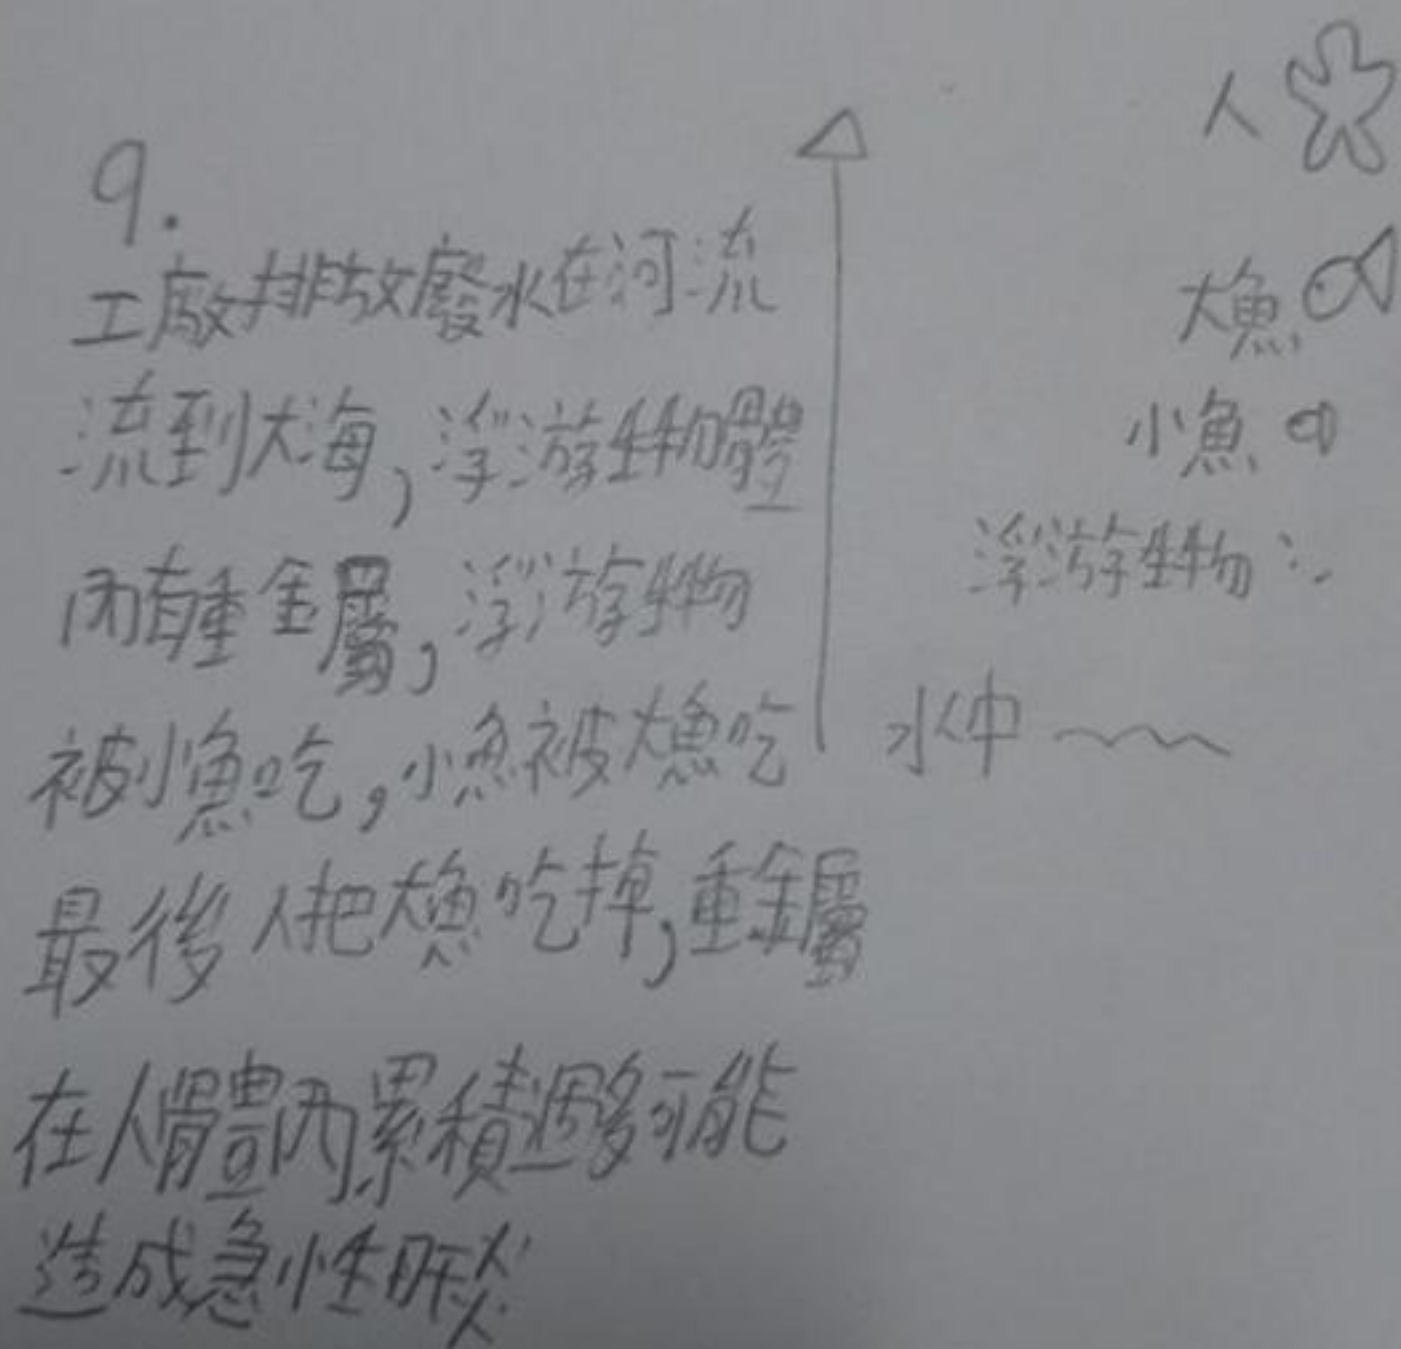 9.
工廠排放廢水在河流
流到大海,浮游生物體
內有重金屬,浮游生物
被小魚吃,小魚被大魚吃
最後人把大魚吃掉,重金屬
在人體內累積過多可能
造成急性肝炎
人
大魚
小魚
浮游生物
水中